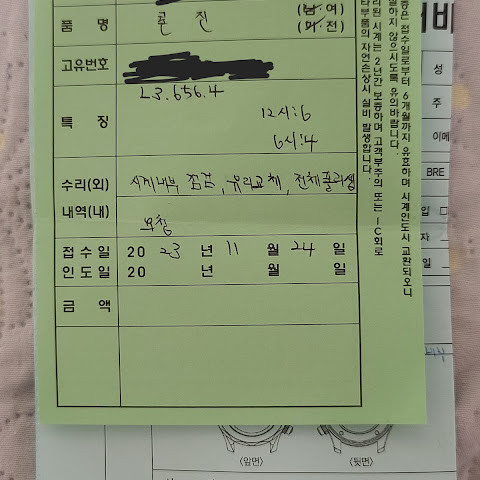 품 명 콘 진 (남 여)
(기 전)
고유번호
L3.656.4
특 징 12시:6
6시:4
수리(외) 시계내부 점검, 유리교체, 전체폴리싱
내역(내) 보험
접수일 2023 년 11 월 24 일
인도일 20 년 월 일
금 액
증은 접수일로부터 6개월까지 유효하며 시계인도시 교환되오니
않으시도록 유의바랍니다.
리된 시계는 2년간 보증하며 고객부주의 또는 IC회로
타부품의 자연손상시 실비 발생합니다.
성
주
이메
BRE
입
자
일
〈앞면〉 〈뒷면〉